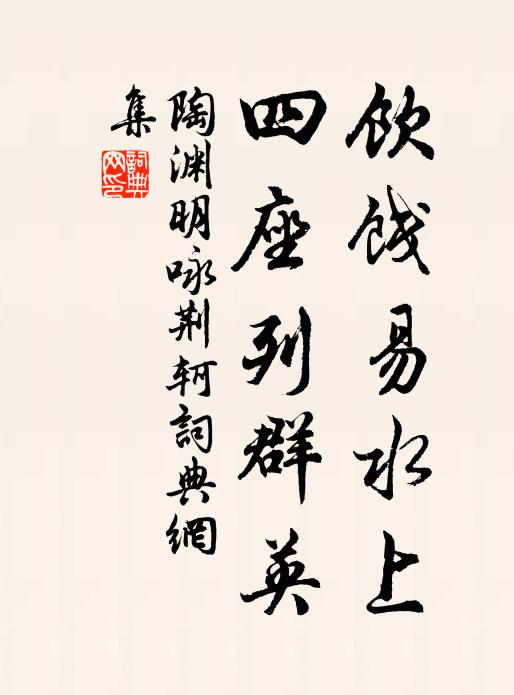 飲餞易水上
四座列群英
陶淵明咏荆軻詞典網
集
詞典网印